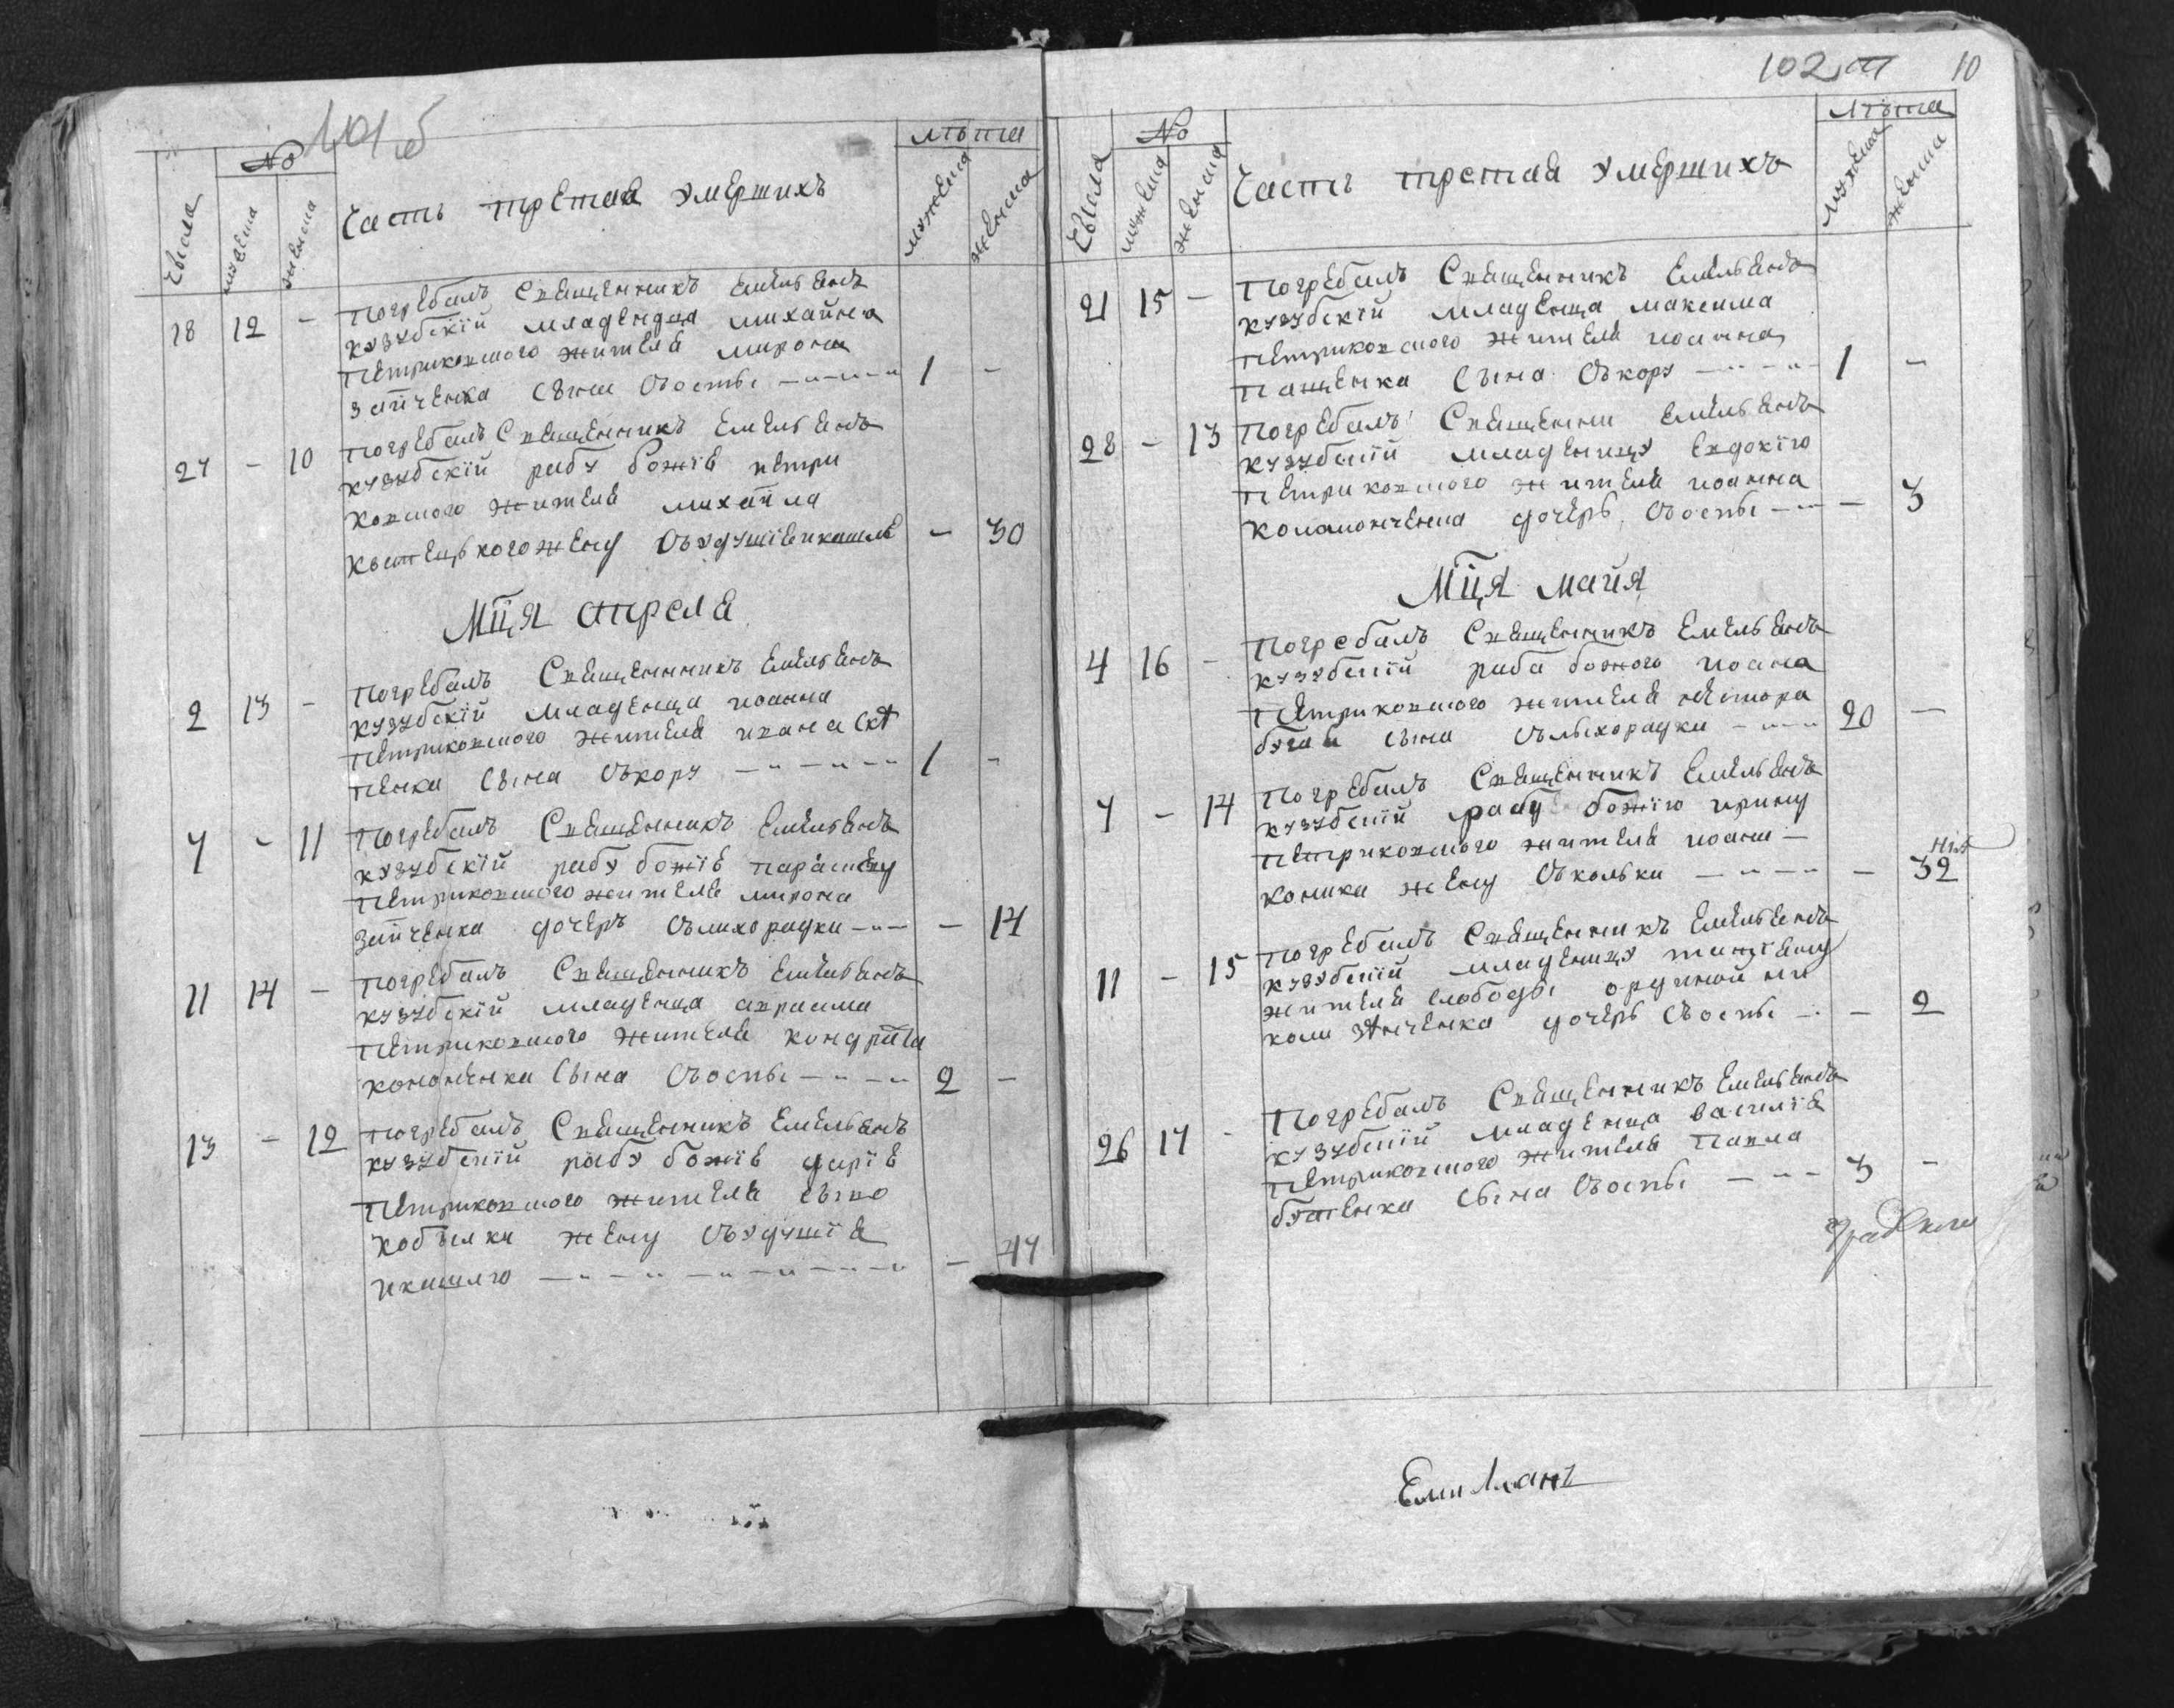 101 б
Числа № мужска женска Часть третая умершихъ лѣта мужска женска
18 12 - Погребалъ Священникъ Емельѣнъ
кузубскїй младенца михайла
Петриковского жителѣ мирона
заи́ченка сына Съоспы 1 -
27 - 10 Погребалъ Священникъ Емельѣнъ
кузубскїй рабу Божїѣ петри
ковского жителѣ михайла
жену Съудушїѣикашлѣ - 30
Мц̃я апрелѣ
2 13 - Погребалъ Священникъ Емельѣнъ
кузубскїй младенца иоанна
Петриковского жителѣ ивана скѣ
пенка сына Съкору 1 -
7 - 11 Погребалъ Священникъ Емельѣнъ
кузубскїй рабу божїѣ параскеву
Петриковского жителѣ мирона
Заи́ченка дочерь Сълихорадки - 14
11 14 - Погребалъ Священникъ Емельѣнъ
кузубскїй младенца аврама
Петриковского жителѣ кондрата
кононенка сына Съоспы 2 -
13 - 12 Погребалъ Священникъ Емельѣнъ
кузубскїй рабу божїѣ дарїѣ
Петриковского жителѣ
кобылки жену Съудушїѣ
икашлю - 47
102 10
Числа № мужска женска Часть третаѣ умершихъ лѣта мужска женска
21 15 - Погребалъ Священникъ Емельѣнъ
кузубскїй младенца максима
Петриковского жителѣ иоанна
Пащенка сына Съкору 1 -
28 - 13 Погребалъ Священни Емельѣнъ
кузубскїй младеницу Евдокїю
Петриковского жителѣ иоанна
дочерь Съоспы - 3
Мц̃я майя
4 16 - Погребалъ Священникъ Емельѣнъ
кузубскїй раба божого иоана
Петриковского жителѣ нестора
бугаѣ сына Сълихорадки 20 -
7 - 14 Погребалъ Священникъ Емельѣнъ
кузубскїй рабу божїю ирину
Петриковского жителѣ иоана
коника жену Съкольки - 32
11 - 15 Погребалъ Священникъ Емельѣнъ
кузубскїй младеницу татїѣну
жителѣ слободы ни
коли зѣнченка дочерь Съоспы - 2
26 17 - Погребалъ Священникъ Емельѣнъ
кузубскїй младенца василїѣ
Петриковского жителѣ Павла
бутенка сына Съоспы 3 -
Емилианъ